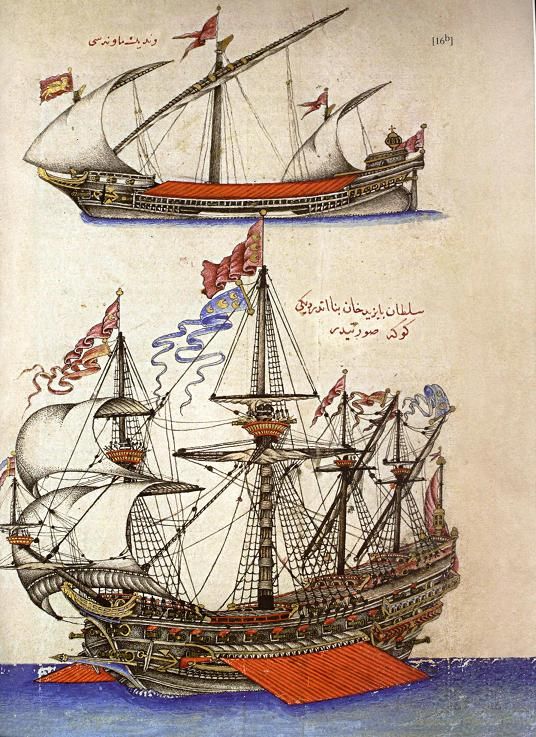 [16b]
وندیك ماونه سی
سلطان بایزید خان بنا اندردیکی
کوکه صورتیدر